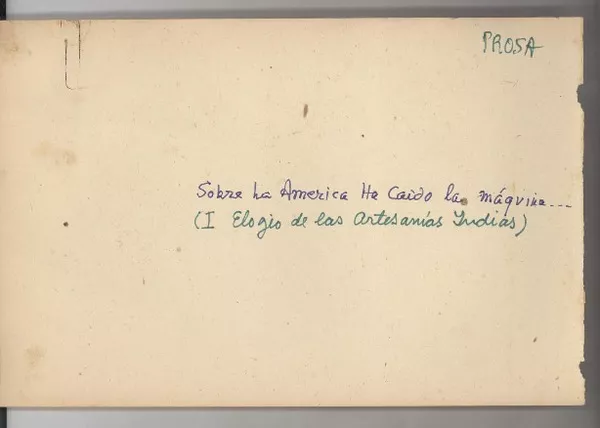 PROSA
Sobre La America Ha Caido la máquina...
(I Elogio de las Artesanías Indias)